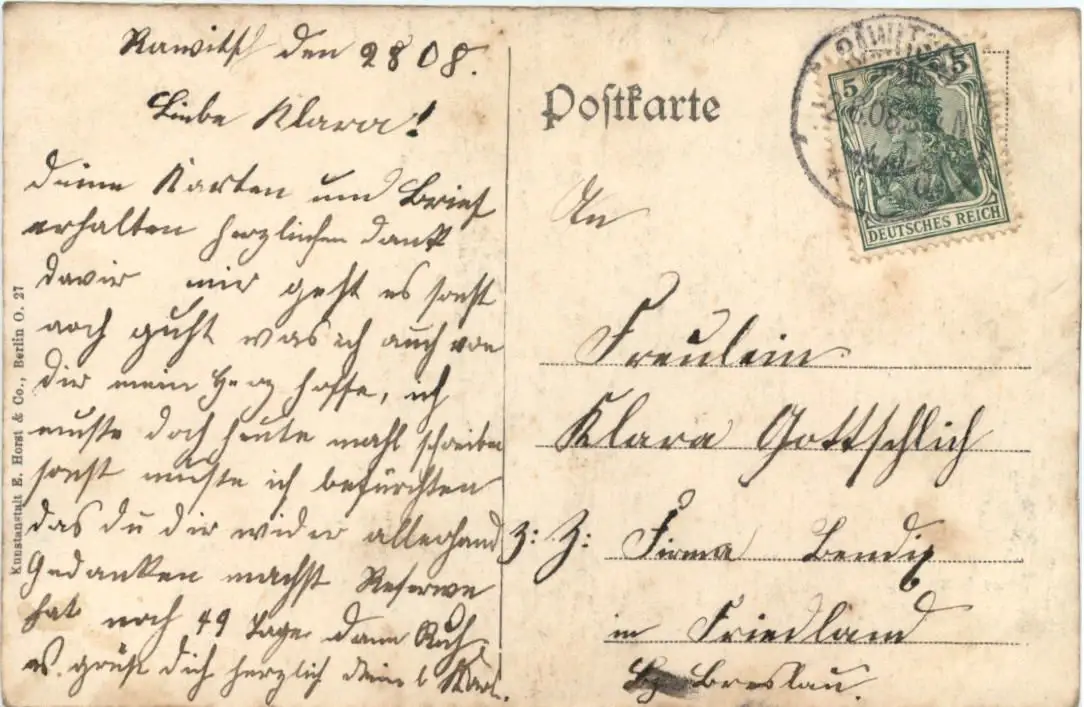 Rawitsch den 2 8 08.
Liebe Klara!
Deine Karten und Brief
erhalten herzlichen Dank
davir mir geht es sonst
noch guht was ich auch von
dir mein Herz hoffe, ich
muste doch heute mahl schreiben
sonst müste ich befürchten
das du dir wider allerhand
Gedanken machst Reserwe
hat noch 49 Tage dann Ruh,
es grüßt dich herzlich dein l. Karl.
Kunstanstalt E. Horst & Co., Berlin O. 27
Postkarte
RAWITSCH
08
5 5
DEUTSCHES REICH
An
Freulein
Klara Gottschlich
z: Z: Firma Bendix
in Friedland
Bz Breslau.